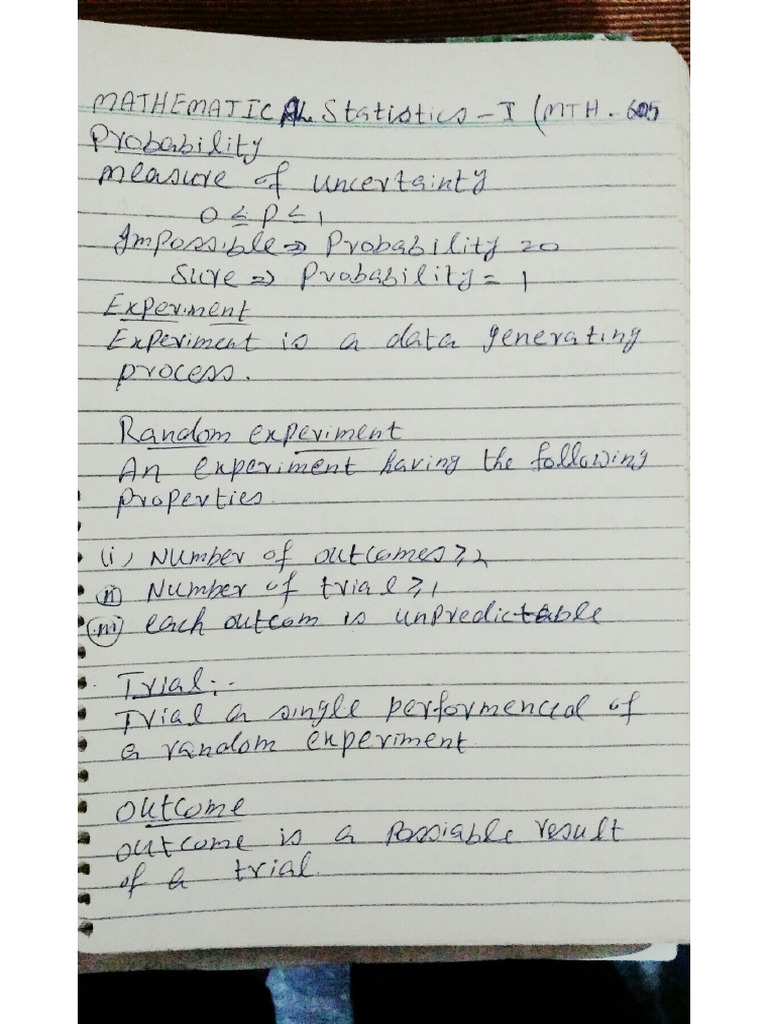 MATHEMATICAL Statistics - I (MTH - 605
Probability
Measure of uncertainty
0 ≤ P ≤ 1
Impossible ⇒ Probability = 0
Sure ⇒ Probability = 1
Experiment
Experiment is a data generating
process.
Random experiment
An experiment having the following
properties.
(i) Number of outcomes ≥ 2
(ii) Number of trial ≥ 1
(iii) each outcom is unpredictable
Trial:-
Trial a single performenced of
a random experiment
Outcome
outcome is a possiable result
of a trial.